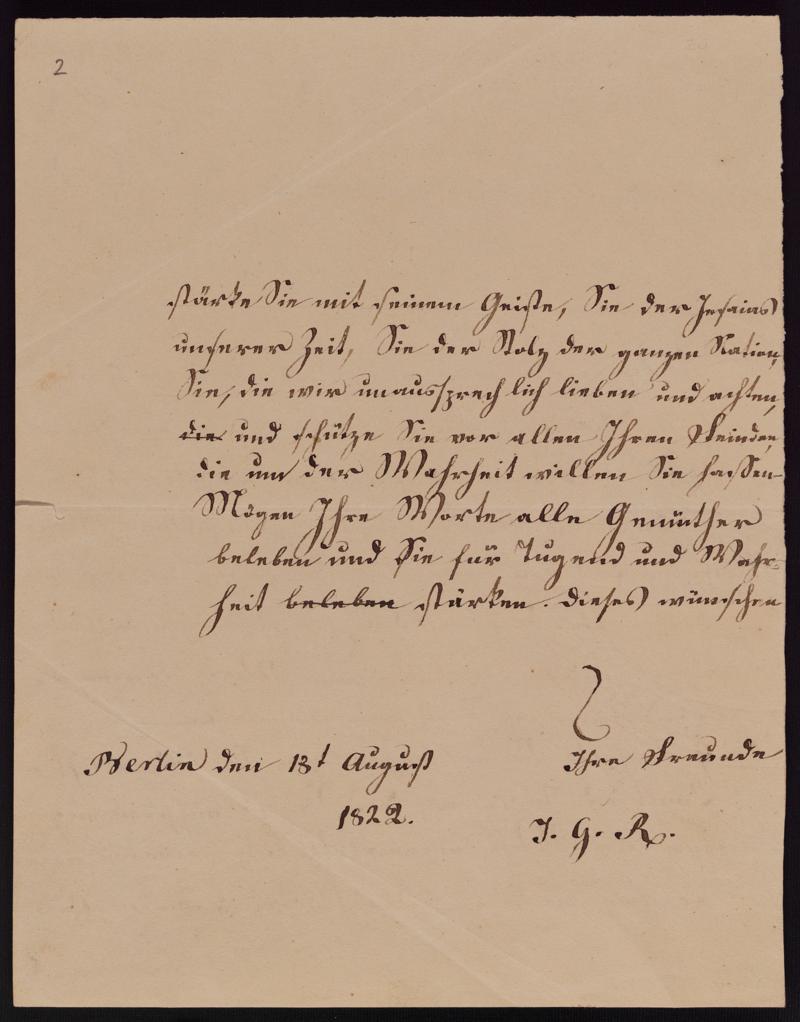 2
stärke Sie mit seinem Geiste, Sie der Jesaias
unserer Zeit, Sie der Stolz der ganzen Nation,
Sie, die wir unaussprechlich lieben und achten,
die und schütze Sie vor allen Ihren Feinden,
die um der Wahrheit willen Sie hassen
Mögen Ihre Worte alle Gemüther
beleben und Sie für Tugend und Wahr-
heit beleben stärken. Dieses wünschen
Ihre Freunde
Berlin den 13t August
1822.
J. G. R.